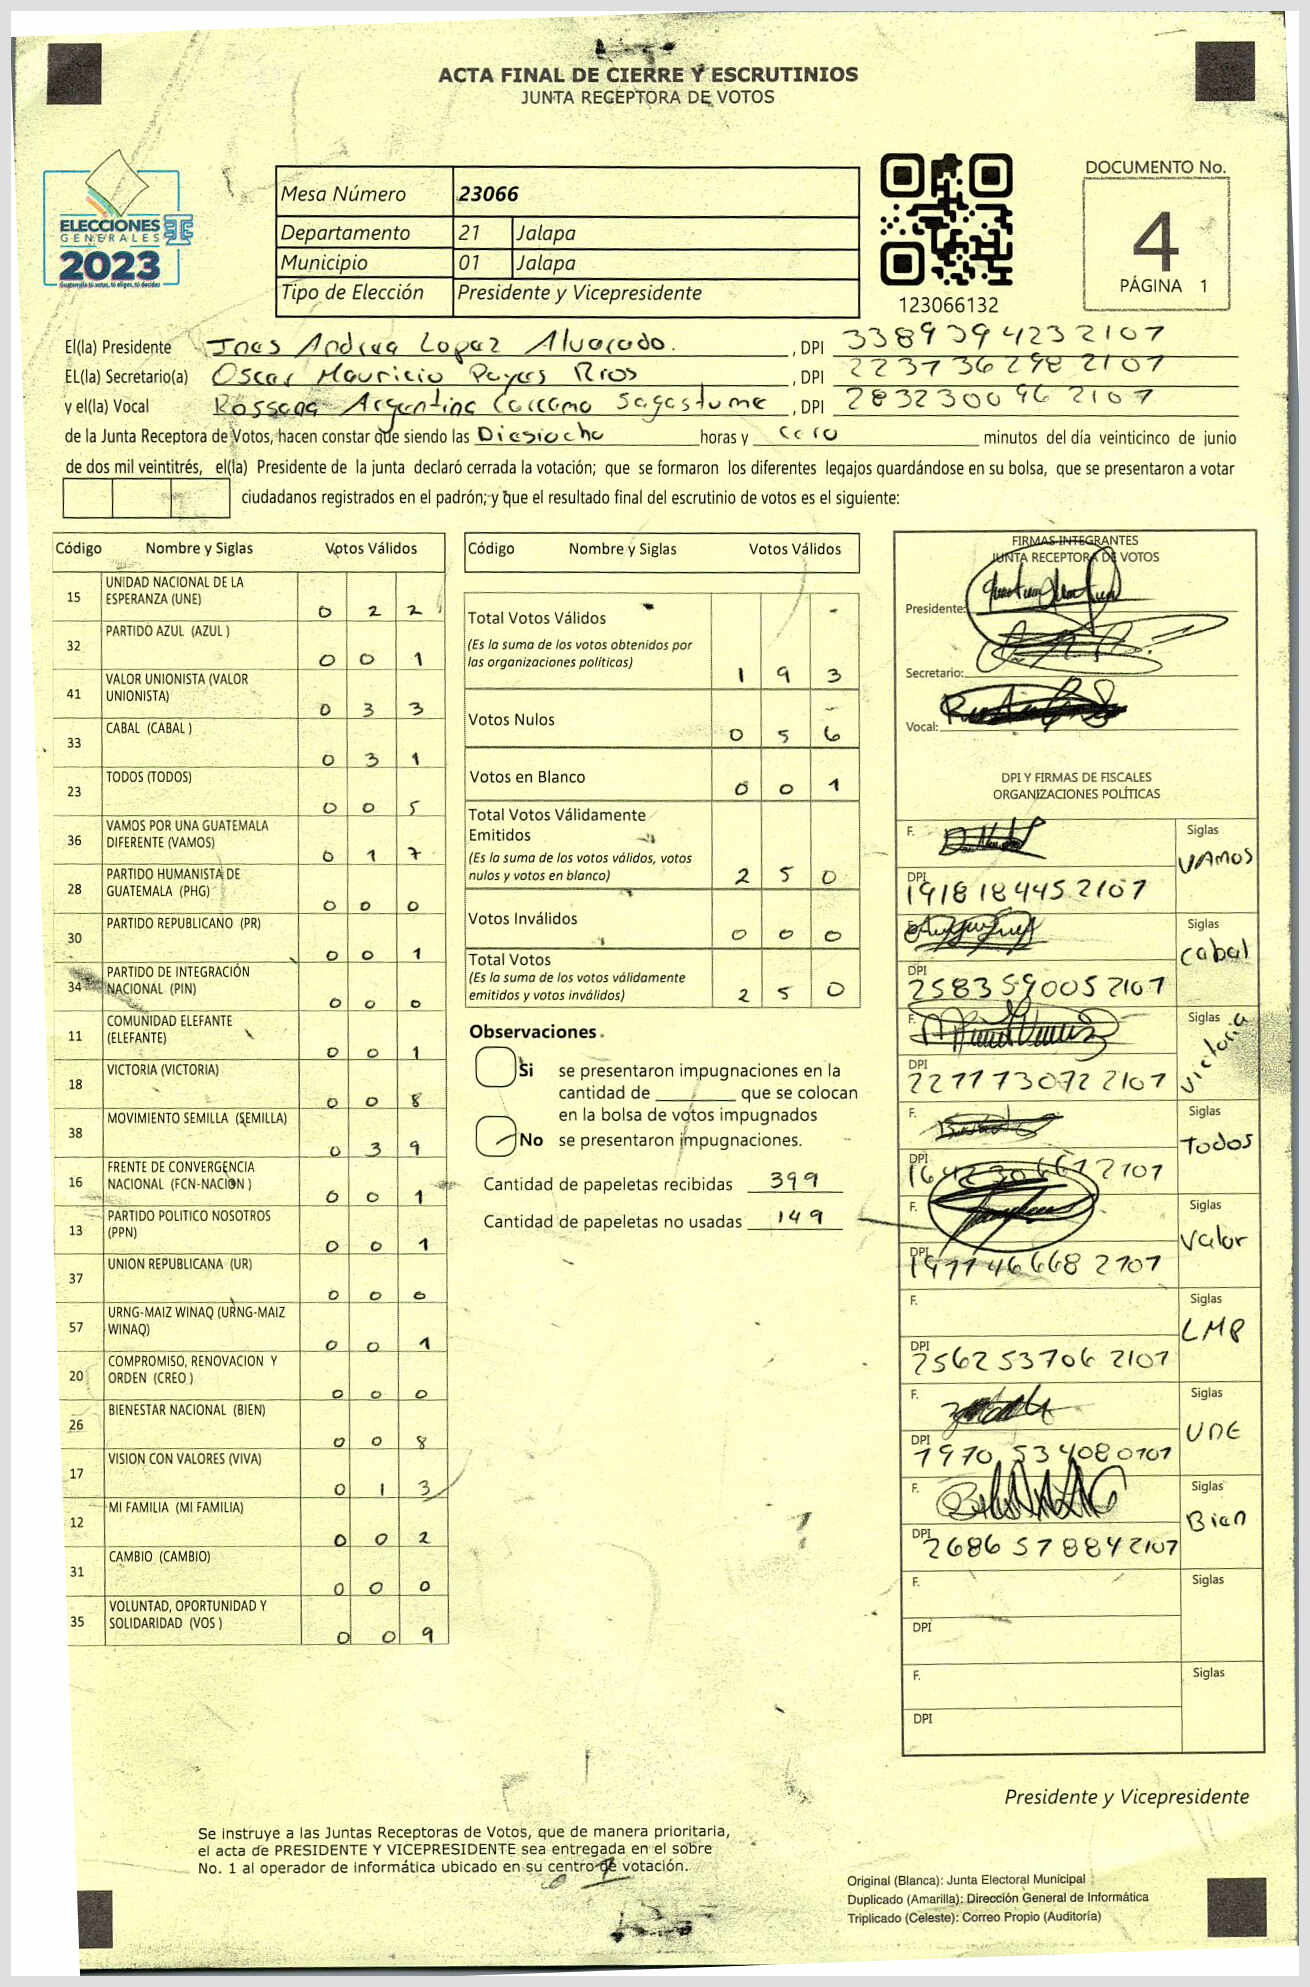 ACTA FINAL DE CIERRE Y ESCRUTINIOS
JUNTA RECEPTORA DE VOTOS
ELECCIONES
GENERALES
2023
Guatemala tú votas, tú eliges, tú decides
Mesa Número 23066
Departamento 21 Jalapa
Municipio 01 Jalapa
Tipo de Elección Presidente y Vicepresidente
123066132
DOCUMENTO No.
4
PÁGINA 1
El(la) Presidente Ines Andrea Lopez Alvarado. , DPI 3389394232107
EL(la) Secretario(a) Oscar Mauricio Payes Rios , DPI 2237362982107
y el(la) Vocal Rossana Argentina Carcamo Sagastume , DPI 2832300962107
de la Junta Receptora de Votos, hacen constar que siendo las Diesiocho horas y cero minutos del día veinticinco de junio
de dos mil veintitrés, el(la) Presidente de la junta declaró cerrada la votación; que se formaron los diferentes legajos guardándose en su bolsa, que se presentaron a votar
ciudadanos registrados en el padrón; y que el resultado final del escrutinio de votos es el siguiente:
Código Nombre y Siglas Votos Válidos
15 UNIDAD NACIONAL DE LA ESPERANZA (UNE) 0 2 2
32 PARTIDO AZUL (AZUL ) 0 0 1
41 VALOR UNIONISTA (VALOR UNIONISTA) 0 3 3
33 CABAL (CABAL ) 0 3 1
23 TODOS (TODOS) 0 0 5
36 VAMOS POR UNA GUATEMALA DIFERENTE (VAMOS) 0 1 7
28 PARTIDO HUMANISTA DE GUATEMALA (PHG) 0 0 0
30 PARTIDO REPUBLICANO (PR) 0 0 1
34 PARTIDO DE INTEGRACIÓN NACIONAL (PIN) 0 0 0
11 COMUNIDAD ELEFANTE (ELEFANTE) 0 0 1
18 VICTORIA (VICTORIA) 0 0 8
38 MOVIMIENTO SEMILLA (SEMILLA) 0 3 9
16 FRENTE DE CONVERGENCIA NACIONAL (FCN-NACION ) 0 0 1
13 PARTIDO POLITICO NOSOTROS (PPN) 0 0 1
37 UNION REPUBLICANA (UR) 0 0 0
57 URNG-MAIZ WINAQ (URNG-MAIZ WINAQ) 0 0 1
20 COMPROMISO, RENOVACION Y ORDEN (CREO ) 0 0 0
26 BIENESTAR NACIONAL (BIEN) 0 0 8
17 VISION CON VALORES (VIVA) 0 1 3
12 MI FAMILIA (MI FAMILIA) 0 0 2
31 CAMBIO (CAMBIO) 0 0 0
35 VOLUNTAD, OPORTUNIDAD Y SOLIDARIDAD (VOS ) 0 0 9
Código Nombre y Siglas Votos Válidos
Total Votos Válidos
(Es la suma de los votos obtenidos por
las organizaciones políticas) 1 9 3
Votos Nulos 0 5 6
Votos en Blanco 0 0 1
Total Votos Válidamente
Emitidos
(Es la suma de los votos válidos, votos
nulos y votos en blanco) 2 5 0
Votos Inválidos 0 0 0
Total Votos
(Es la suma de los votos válidamente
emitidos y votos inválidos) 2 5 0
Observaciones
Si se presentaron impugnaciones en la
cantidad de ________ que se colocan
en la bolsa de votos impugnados
No se presentaron impugnaciones.
Cantidad de papeletas recibidas 399
Cantidad de papeletas no usadas 149
FIRMAS INTEGRANTES
JUNTA RECEPTORA DE VOTOS
Presidente:
Secretario:
Vocal:
DPI Y FIRMAS DE FISCALES
ORGANIZACIONES POLÍTICAS
F. Siglas VAMOS
DPI 1918184452107
F. Siglas Cabal
DPI 2583590052107
F. Siglas Victoria
DPI 2277730722107
F. Siglas Todos
DPI
F. Siglas Valor
DPI 1977466682107
F. Siglas LMP
DPI 2562537062107
F. Siglas UNE
DPI 7970534080707
F. Siglas Bien
DPI 2686578842107
F. Siglas
DPI
F. Siglas
DPI
Presidente y Vicepresidente
Se instruye a las Juntas Receptoras de Votos, que de manera prioritaria,
el acta de PRESIDENTE Y VICEPRESIDENTE sea entregada en el sobre
No. 1 al operador de informática ubicado en su centro de votación.
Original (Blanca): Junta Electoral Municipal
Duplicado (Amarilla): Dirección General de Informática
Triplicado (Celeste): Correo Propio (Auditoría)